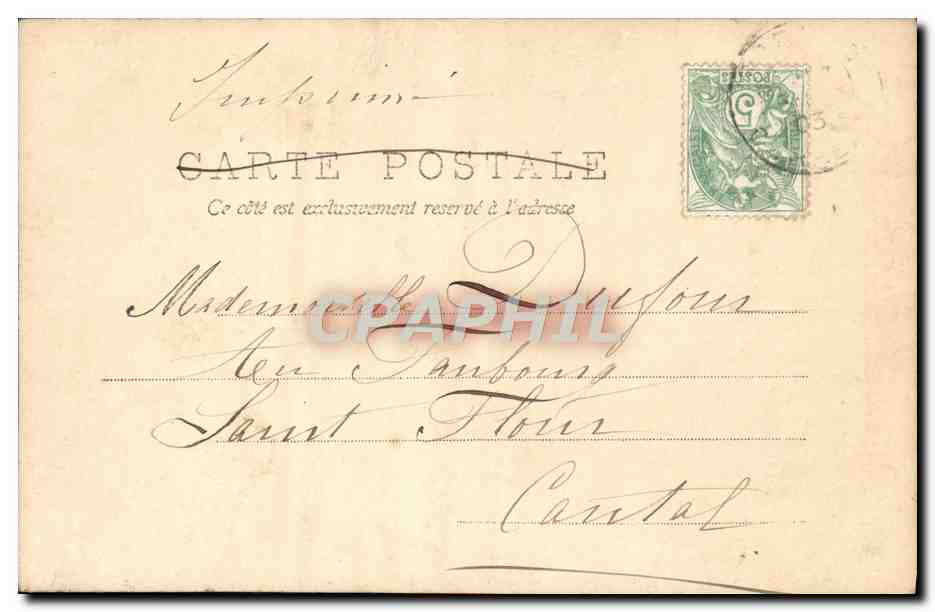 Imprimé
CARTE POSTALE
Ce côté est exclusivement reservé à l'adresse
POSTES
5
03
Mademoiselle Dufour
CPAPHIL
Au Faubourg
Saint Flour
Cantal